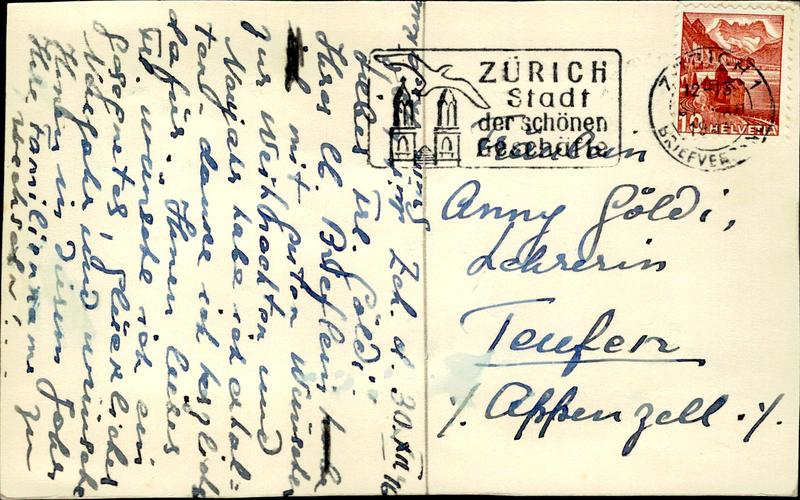 ZÜRICH
Stadt
der schönen
Geschäfte
10 HELVETIA
Fräulein
Anny Göldi,
Lehrerin
Teufen
./. Appenzell ./.
Zch. d. 30. XII. 46
Liebes Frl. Göldi!
Ihres lb. Brieflein
mit guten Wünschen
zur Weihnachten und
Neujahr habe ich erhal=
ten, danke ich herzlich
dafür. Ihnen liebes
Frl. wünsche ich ein
gesegnetes, glückliches
Neujahr und wünsche
Ihnen in diesem Jahr
Ihre Familienname zu
wechseln!...